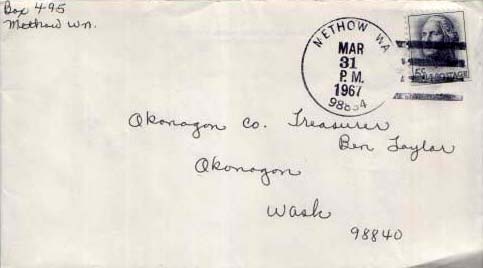 Box 495
Methow Wn.
METHOW WA
MAR
31
P.M.
1967
5¢
Okonagon Co. Treasurer
Ben Taylor
Okonagon
Wash
98840